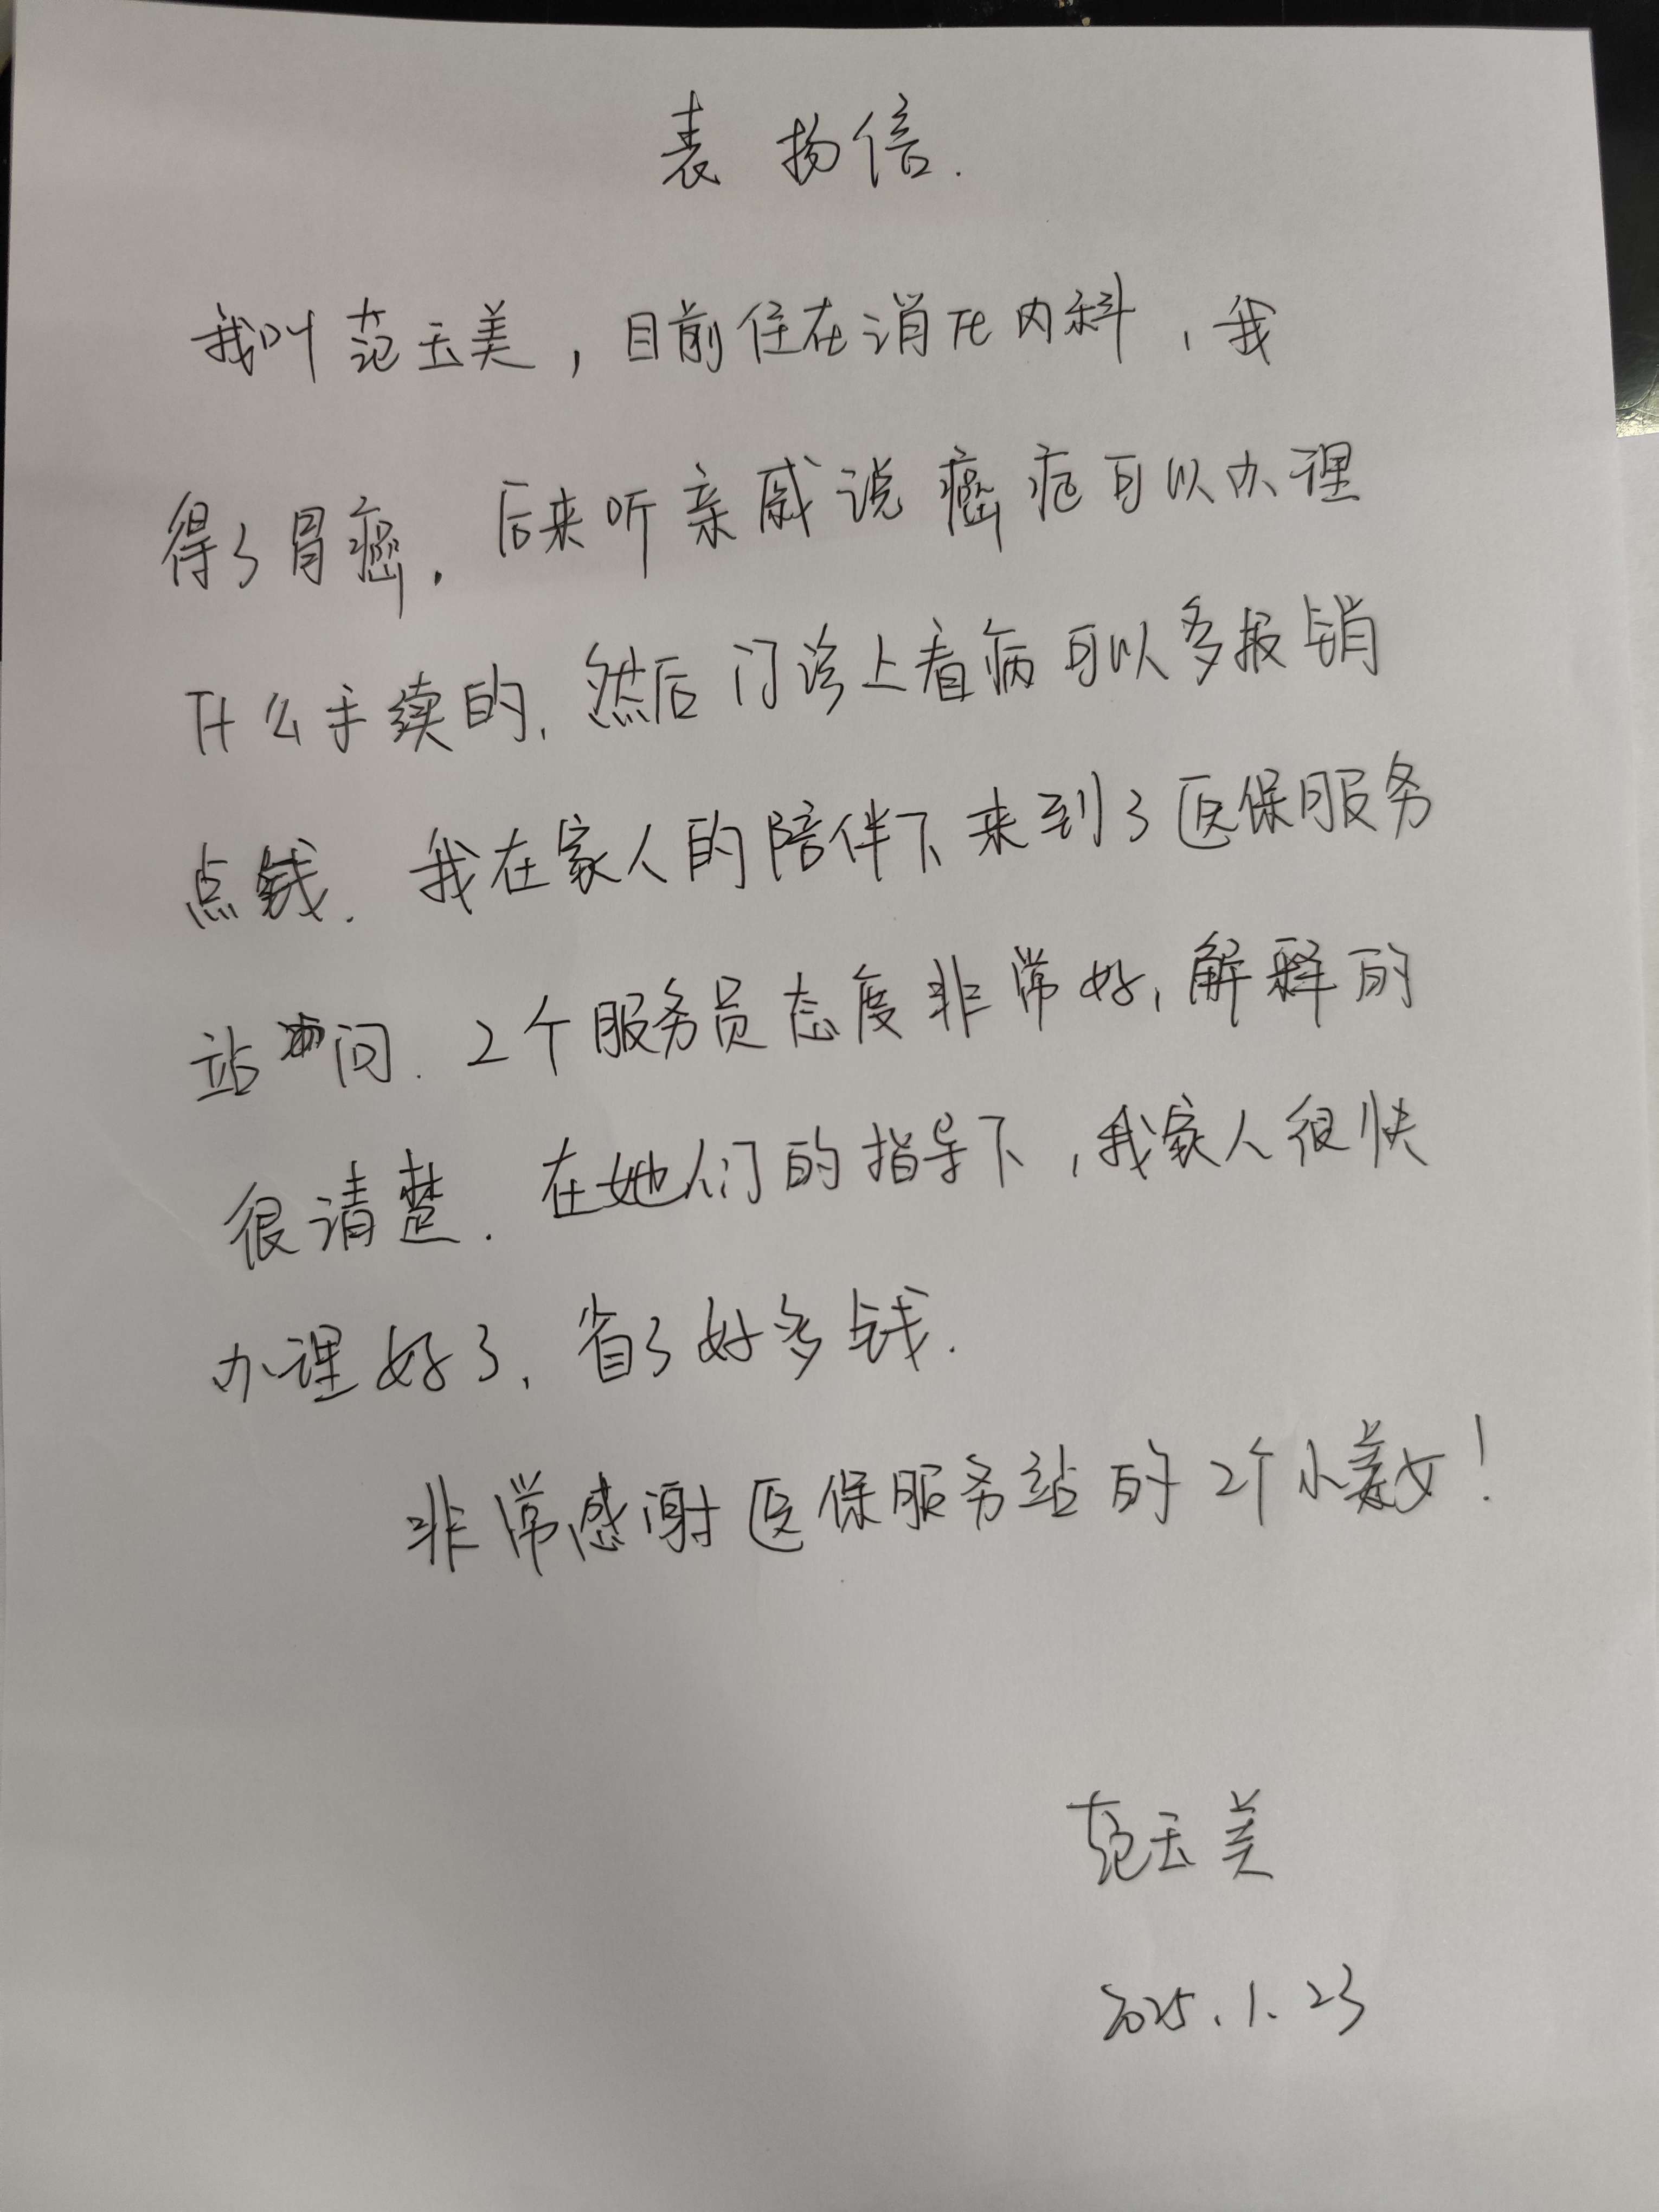 表扬信.
我叫范玉美，目前住在消化内科，我
得了胃癌.后来听亲戚说癌症可以办理
什么手续的,然后门诊上看病可以多报销
点钱.我在家人的陪伴下来到了医保服务
站问.2个服务员态度非常好,解释的
很清楚.在她们的指导下,我家人很快
办理好了,省了好多钱.
非常感谢医保服务站的2个小美女!
范玉美
2025.1.23